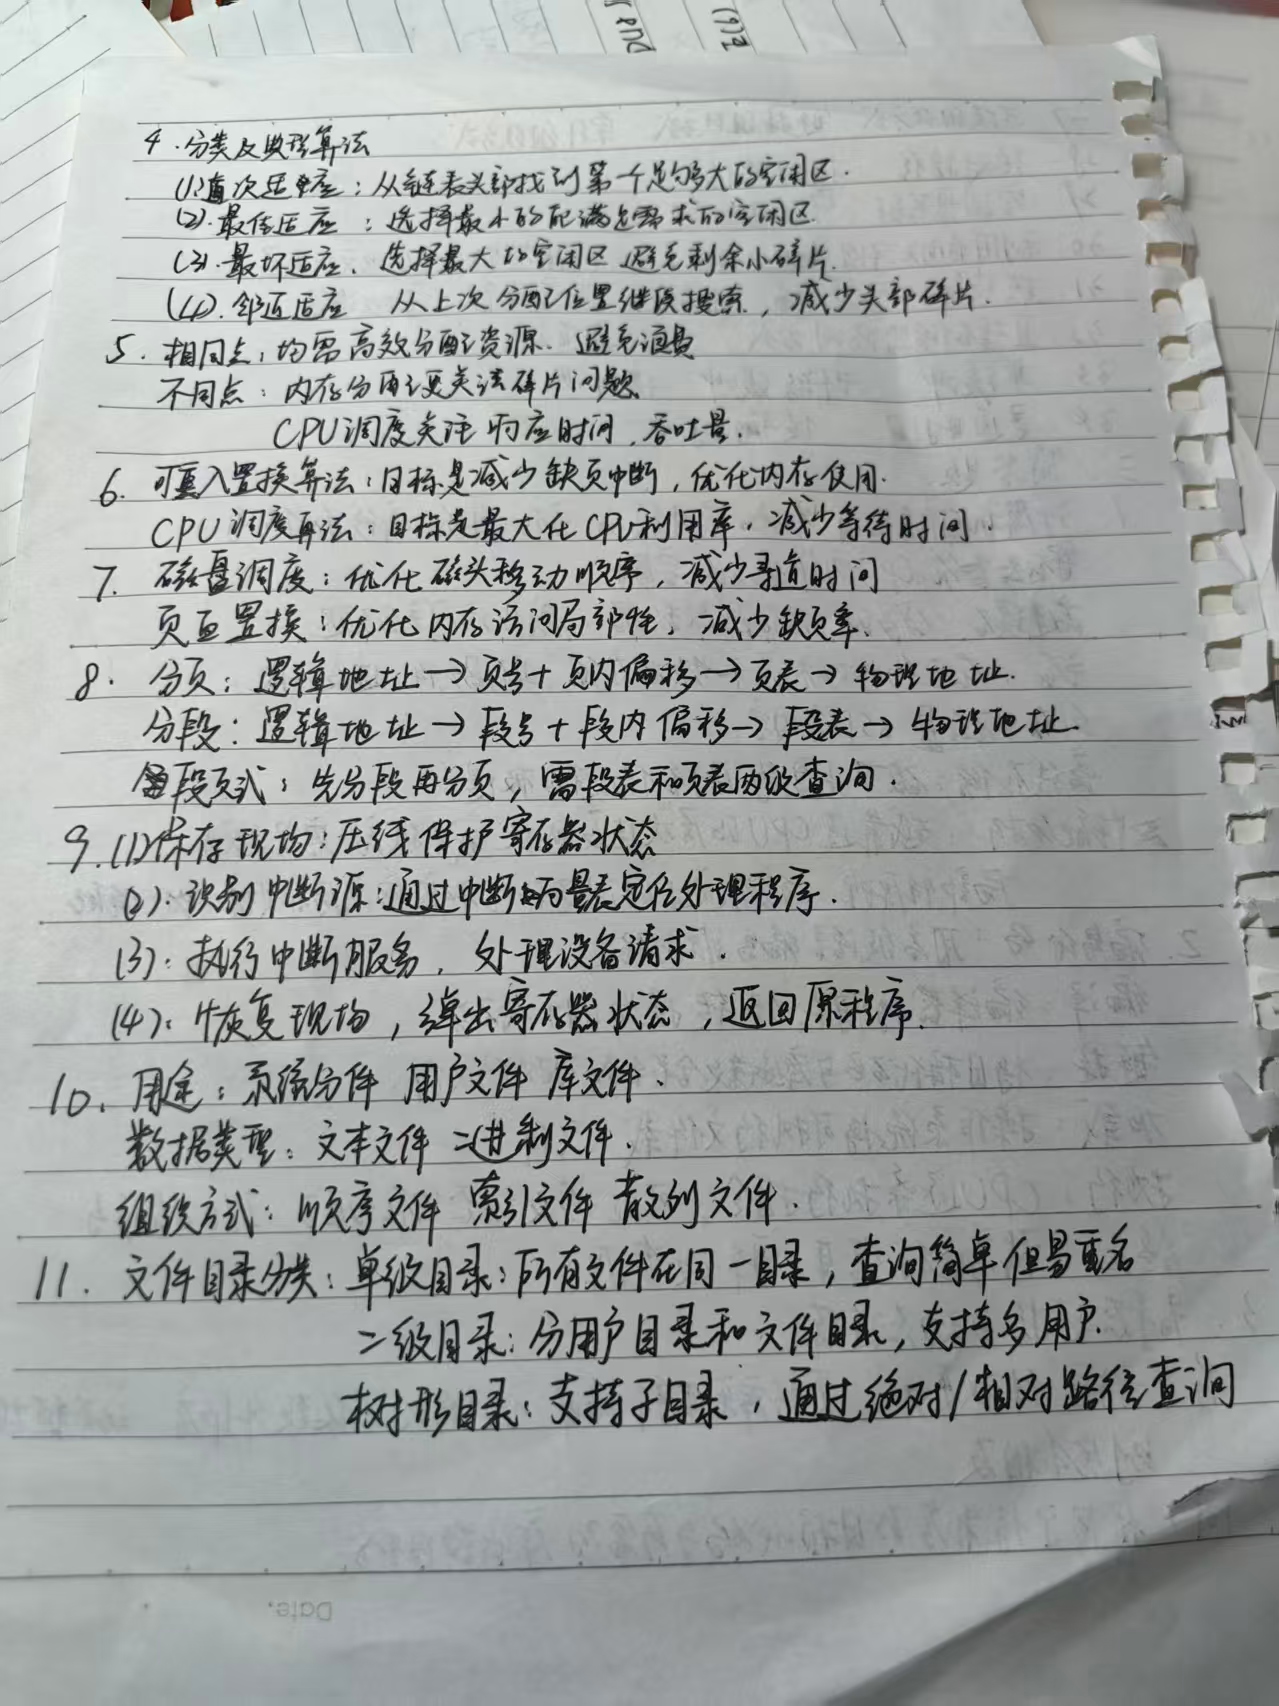 4.分类及典型算法
(1)首次适应：从链表头部找到第一个足够大的空闲区.
(2).最佳适应：选择最小的能满足需求的空闲区.
(3).最坏适应. 选择最大的空闲区 避免剩余小碎片.
(4).邻近适应 从上次分配位置继续搜索，减少头部碎片.
5.相同点：均需高效分配资源. 避免浪费
不同点：内存分配更关注碎片问题.
CPU调度关注响应时间.吞吐量.
6.页面置换算法：目标是减少缺页中断，优化内存使用.
CPU调度算法：目标是最大化CPU利用率，减少等待时间.
7.磁盘调度：优化磁头移动顺序，减少寻道时间
页面置换：优化内存访问局部性，减少缺页率.
8.分页：逻辑地址→页号+页内偏移→页表→物理地址.
分段：逻辑地址→段号+段内偏移→段表→物理地址.
段页式：先分段再分页，需段表和页表两级查询.
9.(1)保存现场：压线保护寄存器状态
(2).识别中断源：通过中断向量表定位处理程序.
(3).执行中断服务，处理设备请求.
(4).恢复现场，弹出寄存器状态，返回原程序.
10.用途：系统文件 用户文件 库文件.
数据类型：文本文件 二进制文件.
组织方式：顺序文件 索引文件 散列文件.
11.文件目录分类：单级目录：所有文件在同一目录，查询简单但易重名
二级目录：分用户目录和文件目录，支持多用户.
树形目录：支持子目录，通过绝对/相对路径查询
Date.